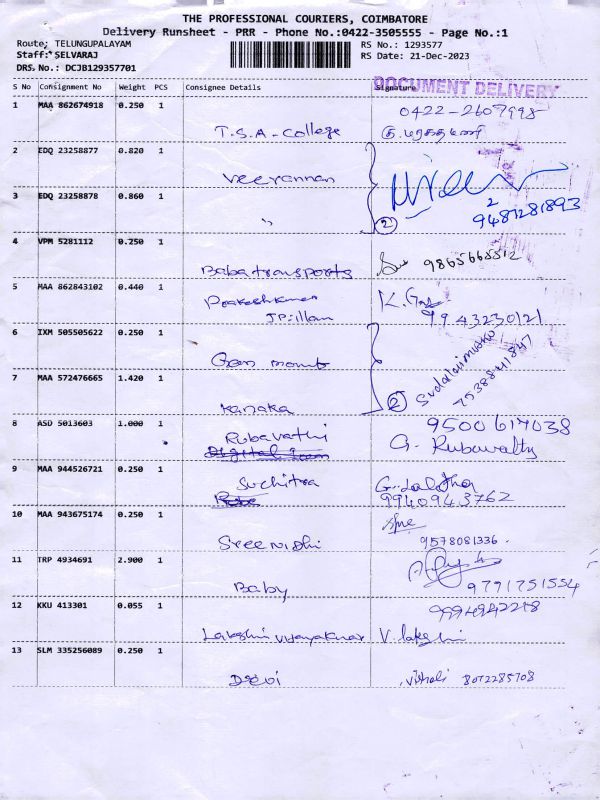 THE PROFESSIONAL COURIERS, COIMBATORE
Delivery Runsheet - PRR - Phone No.:0422-3505555 - Page No.:1
Route: TELUNGUPALAYAM RS No.: 1293577
Staff: SELVARAJ RS Date: 21-Dec-2023
DRS. No.: DCJB129357701
DOCUMENT DELIVERY
S No Consignment No Weight PCS Consignee Details Signature
1 MAA 862674918 0.250 1 0422-2607998
T.S.A-College
2 EDQ 23258877 0.820 1
Veerannan
3 EDQ 23258878 0.860 1
" 2 9487281893
4 VPM 5281112 0.250 1
Baba transports 9865668512
5 MAA 862843102 0.440 1
JP illam 9943230121
6 IXM 505505622 0.250 1
7 MAA 572476665 1.420 1
Kanaka 2
8 ASD 5013603 1.000 1 9500617038
Rubavathi G. Rubavathy
9 MAA 944526721 0.250 1
Suchitra
9940943762
10 MAA 943675174 0.250 1
Sreenidhi 9578081336.
11 TRP 4934691 2.900 1
Baby 9791751554
12 KKU 413301 0.055 1
Lakshmi Vijayakumar V. lakshmi
13 SLM 335256089 0.250 1
Devi 8072285708